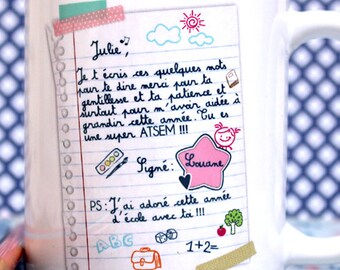 Julie,
Je t'écris ces quelques mots
pour te dire merci pour ta
gentillesse et ta patience et
surtout pour m'avoir aidée à
grandir cette année. Tu es
une super ATSEM !!!
Signé : Louane
PS : J'ai adoré cette année
d'école avec toi !!!
ABC
1+2=